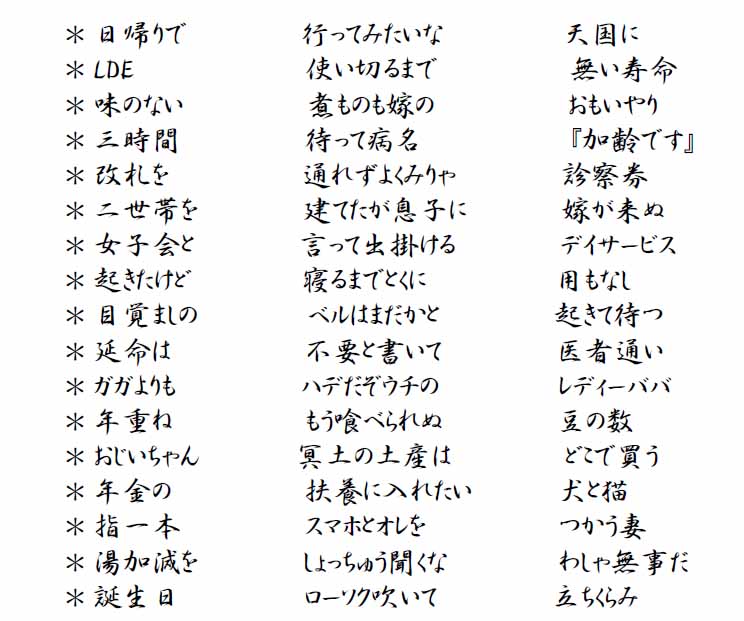 ＊日帰りで 行ってみたいな 天国に
＊LDE 使い切るまで 無い寿命
＊味のない 煮ものも嫁の おもいやり
＊三時間 待って病名 『加齢です』
＊改札を 通れずよくみりゃ 診察券
＊二世帯を 建てたが息子に 嫁が来ぬ
＊女子会と 言って出掛ける デイサービス
＊起きたけど 寝るまでとくに 用もなし
＊目覚ましの ベルはまだかと 起きて待つ
＊延命は 不要と書いて 医者通い
＊ガガよりも ハデだぞウチの レディーババ
＊年重ね もう喰べられぬ 豆の数
＊おじいちゃん 冥土の土産は どこで買う
＊年金の 扶養に入れたい 犬と猫
＊指一本 スマホとオレを つかう妻
＊湯加減を しょっちゅう聞くな わしゃ無事だ
＊誕生日 ローソク吹いて 立ちくらみ